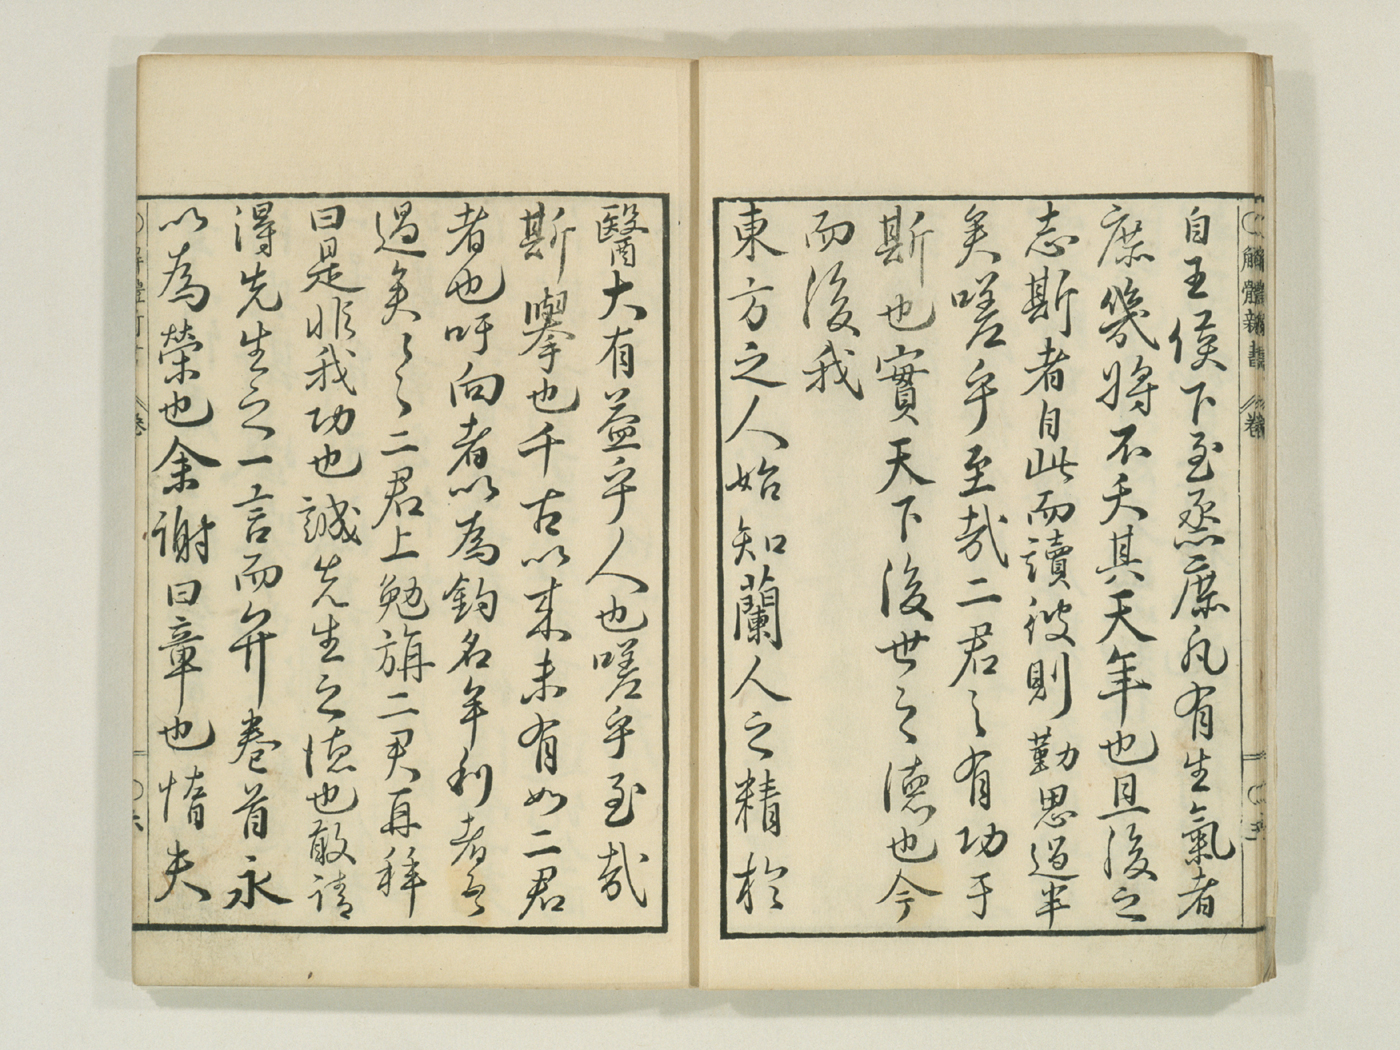 解體新書 卷
自王侯下至烝庶凡有生氣者
庶幾將不夭其天年也且後之
志斯者自此而讀彼則勤思過半
矣嗟乎至哉二君之有功于
斯也實天下後世之德也今
而後我
東方之人始知蘭人之精於
醫大有益乎人也嗟乎至哉
斯擧也千古以來未有如二君
者也吁向者以為釣名牟利者吾
過矣過矣二君上勉旃二君再拜
曰是非我功也誠先生之德也敢請
得先生之一言而弁卷首永
以為榮也余謝曰章也惰夫